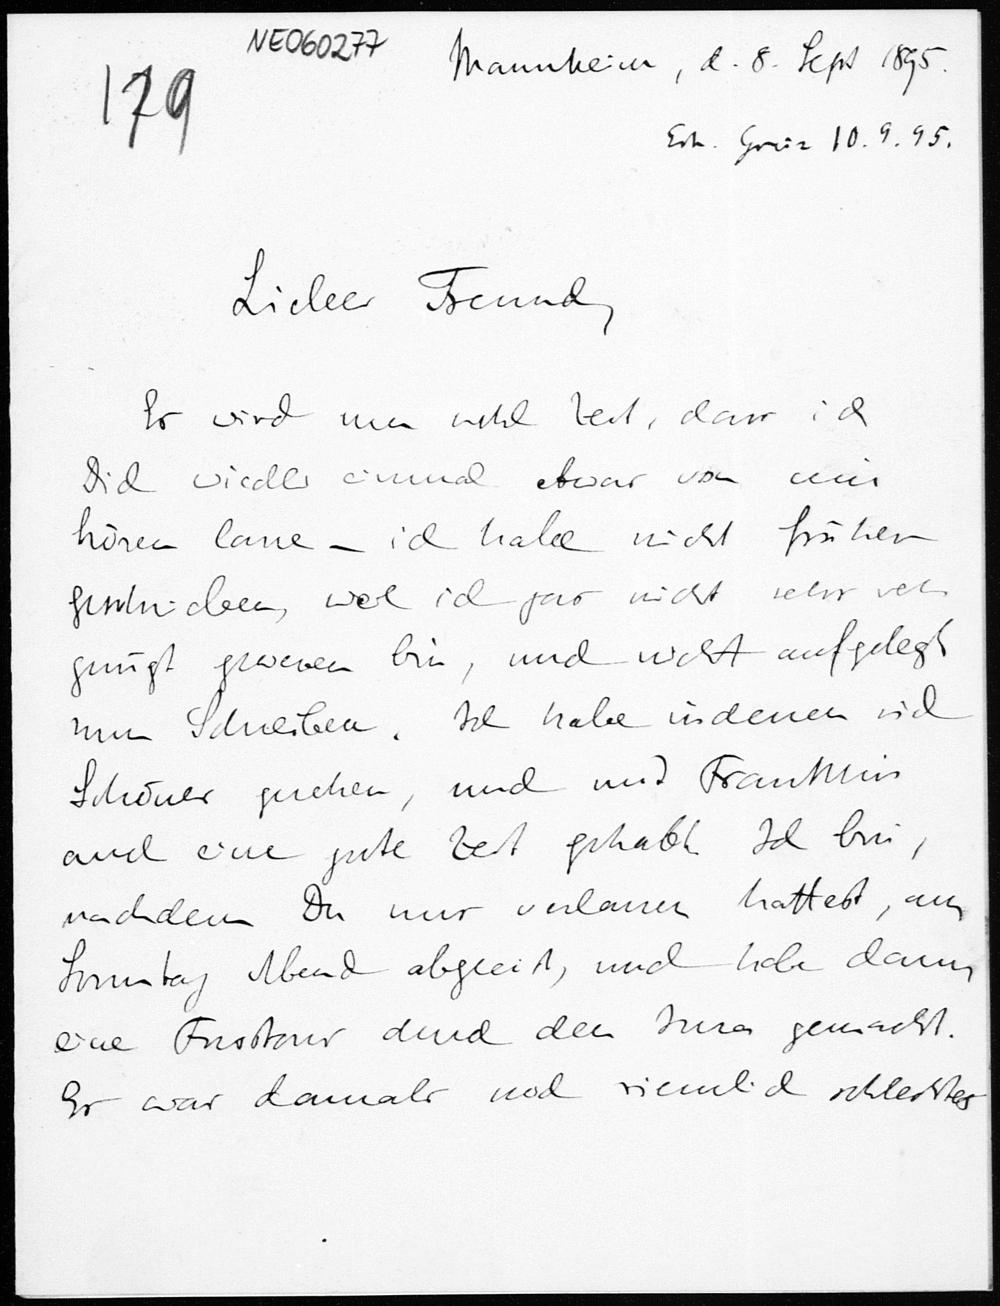 NE060277
179
Mannheim, d. 8. Sept 1895.
Erh. Graz 10.9.95.
Lieber Freund,
Es wird nun wohl Zeit, dass ich
Dich wieder einmal etwas von mir
hören lasse – ich habe nicht früher
geschrieben, weil ich gar nicht sehr ver
gnügt gewesen bin, und nicht aufgelegt
zum Schreiben. Ich habe indessen viel
Schönes gesehen, und mit Franklin
auch eine gute Zeit gehabt. Ich bin,
nachdem Du mir verlassen hattest, am
Sonntag Abend abgereist, und habe dann
eine Fusstour durch den Jura gemacht.
Es war damals noch ziemlich schlechtes